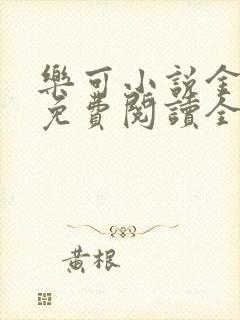 樂可小說全
免費閱讀全
黃根